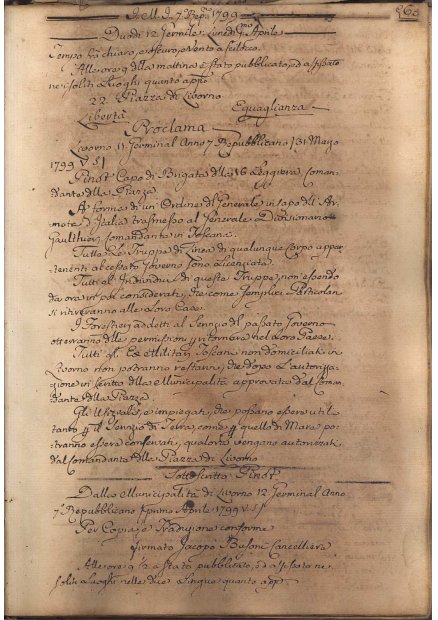 265
1799
Duodi 12 Germile Lunedi pmo Aprile
Tempo frà chiaro, e oscuro, vento a Scilocco
Alle ore 9 della mattina è stato pubblicato, ed affisso
ne soliti Luoghi quanto appo
22. Piazza di Livorno
Libertà Eguaglianza
Proclama
Livorno 11 Germinal Anno 7 Repubblicano / 31 Marzo
1799 V. S /
Pinot Capo di Brigata della 16 Leggiera Coman-
dante della Piazza
A forma di un' Ordine del Generale in Capo dell Ar-
mata d'Italia trasmesso al Generale Divisionario
Gaulthier comandante in Toscana
Tutte le Truppe di Linea di qualunque Corpo appar-
tenenti al cessato Governo sono Licenziate
Tutti gl' Individui di queste Truppe, non essendo
da ora in poi considerati, che come semplici Particolari
si ritireranno alle Loro Case
I Forestieri addetti al Servizio del passato Governo
otterranno delle permissioni per ritornare nel Loro Paese
Tutti gl' Ex-Militari Toscani non domiciliati in
Livorno non potranno restarvi, che dopo L'autorizza-
zione in scritto della Municipalità approvata dal Coman-
dante della Piazza
Gli Uffiziali, e impiegati, che possano essere utili
tanto per il Servizio di Terra, come per quello di Mare po-
tranno essere conservati, qualora vengano autorizzati
dal Comandante della Piazza di Livorno
Sottoscritto Pinot
Dalla Municipalità di Livorno 12 Germinal Anno
7 Repubblicano / primo Aprile 1799 V. S /
Per Copia, e Traduzione conforme
firmato Jacopo Busoni Cancelliere
Alle ore 9 1/2 è stato pubblicato, ed affisso ne
soliti Luoghi nelle due Lingue quanto app